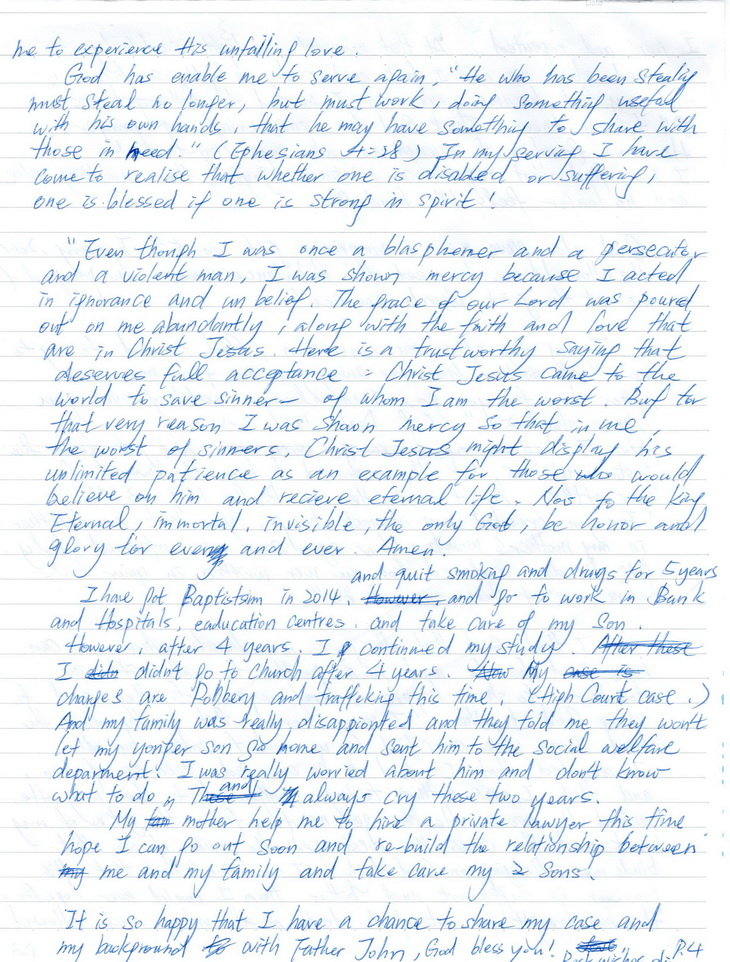 me to experience His unfailing love.
God has enable me to serve again, "He who has been stealing
must steal no longer, but must work, doing something useful
with his own hands, that he may have something to share with
those in need." (Ephesians 4:28) In my serving I have
come to realise that whether one is disabled or suffering,
one is blessed if one is strong in spirit!
"Even though I was once a blasphemer and a persecutor
and a violent man, I was shown mercy because I acted
in ignorance and unbelief. The grace of our Lord was poured
out on me abundantly, along with the faith and love that
are in Christ Jesus. Here is a trustworthy saying that
deserves full acceptance : Christ Jesus came to the
world to save sinner- of whom I am the worst. But for
that very reason I was shown mercy so that in me,
the worst of sinners, Christ Jesus might display his
unlimited patience as an example for those who would
believe on him and recieve eternal life. Now to the King
Eternal, immortal, invisible, the only God, be honor and
glory for every and ever. Amen.
and quit smoking and drugs for 5 years
I have got Baptistsm in 2014. However, and go to work in Bank
and Hospitals, eaducation centres. and take care of my Son.
However, after 4 years. I continued my study. After these
I didn't go to church after 4 years. Now My case is
charges are Robbery and traffeking this time. (High Court case.)
And my family was really disappionted and they told me they won't
let my yonger son go home and sent him to the social welfare
deparment. I was really worried about him and don't know
what to do, and I always cry these two years.
My mother help me to hire a private lawyer this time
hope I can go out soon and re-build the relationship between
my me and my family and take care my 2 Sons.
It is so happy that I have a chance to share my case and
my background to with Father John, God bless you!
P.4